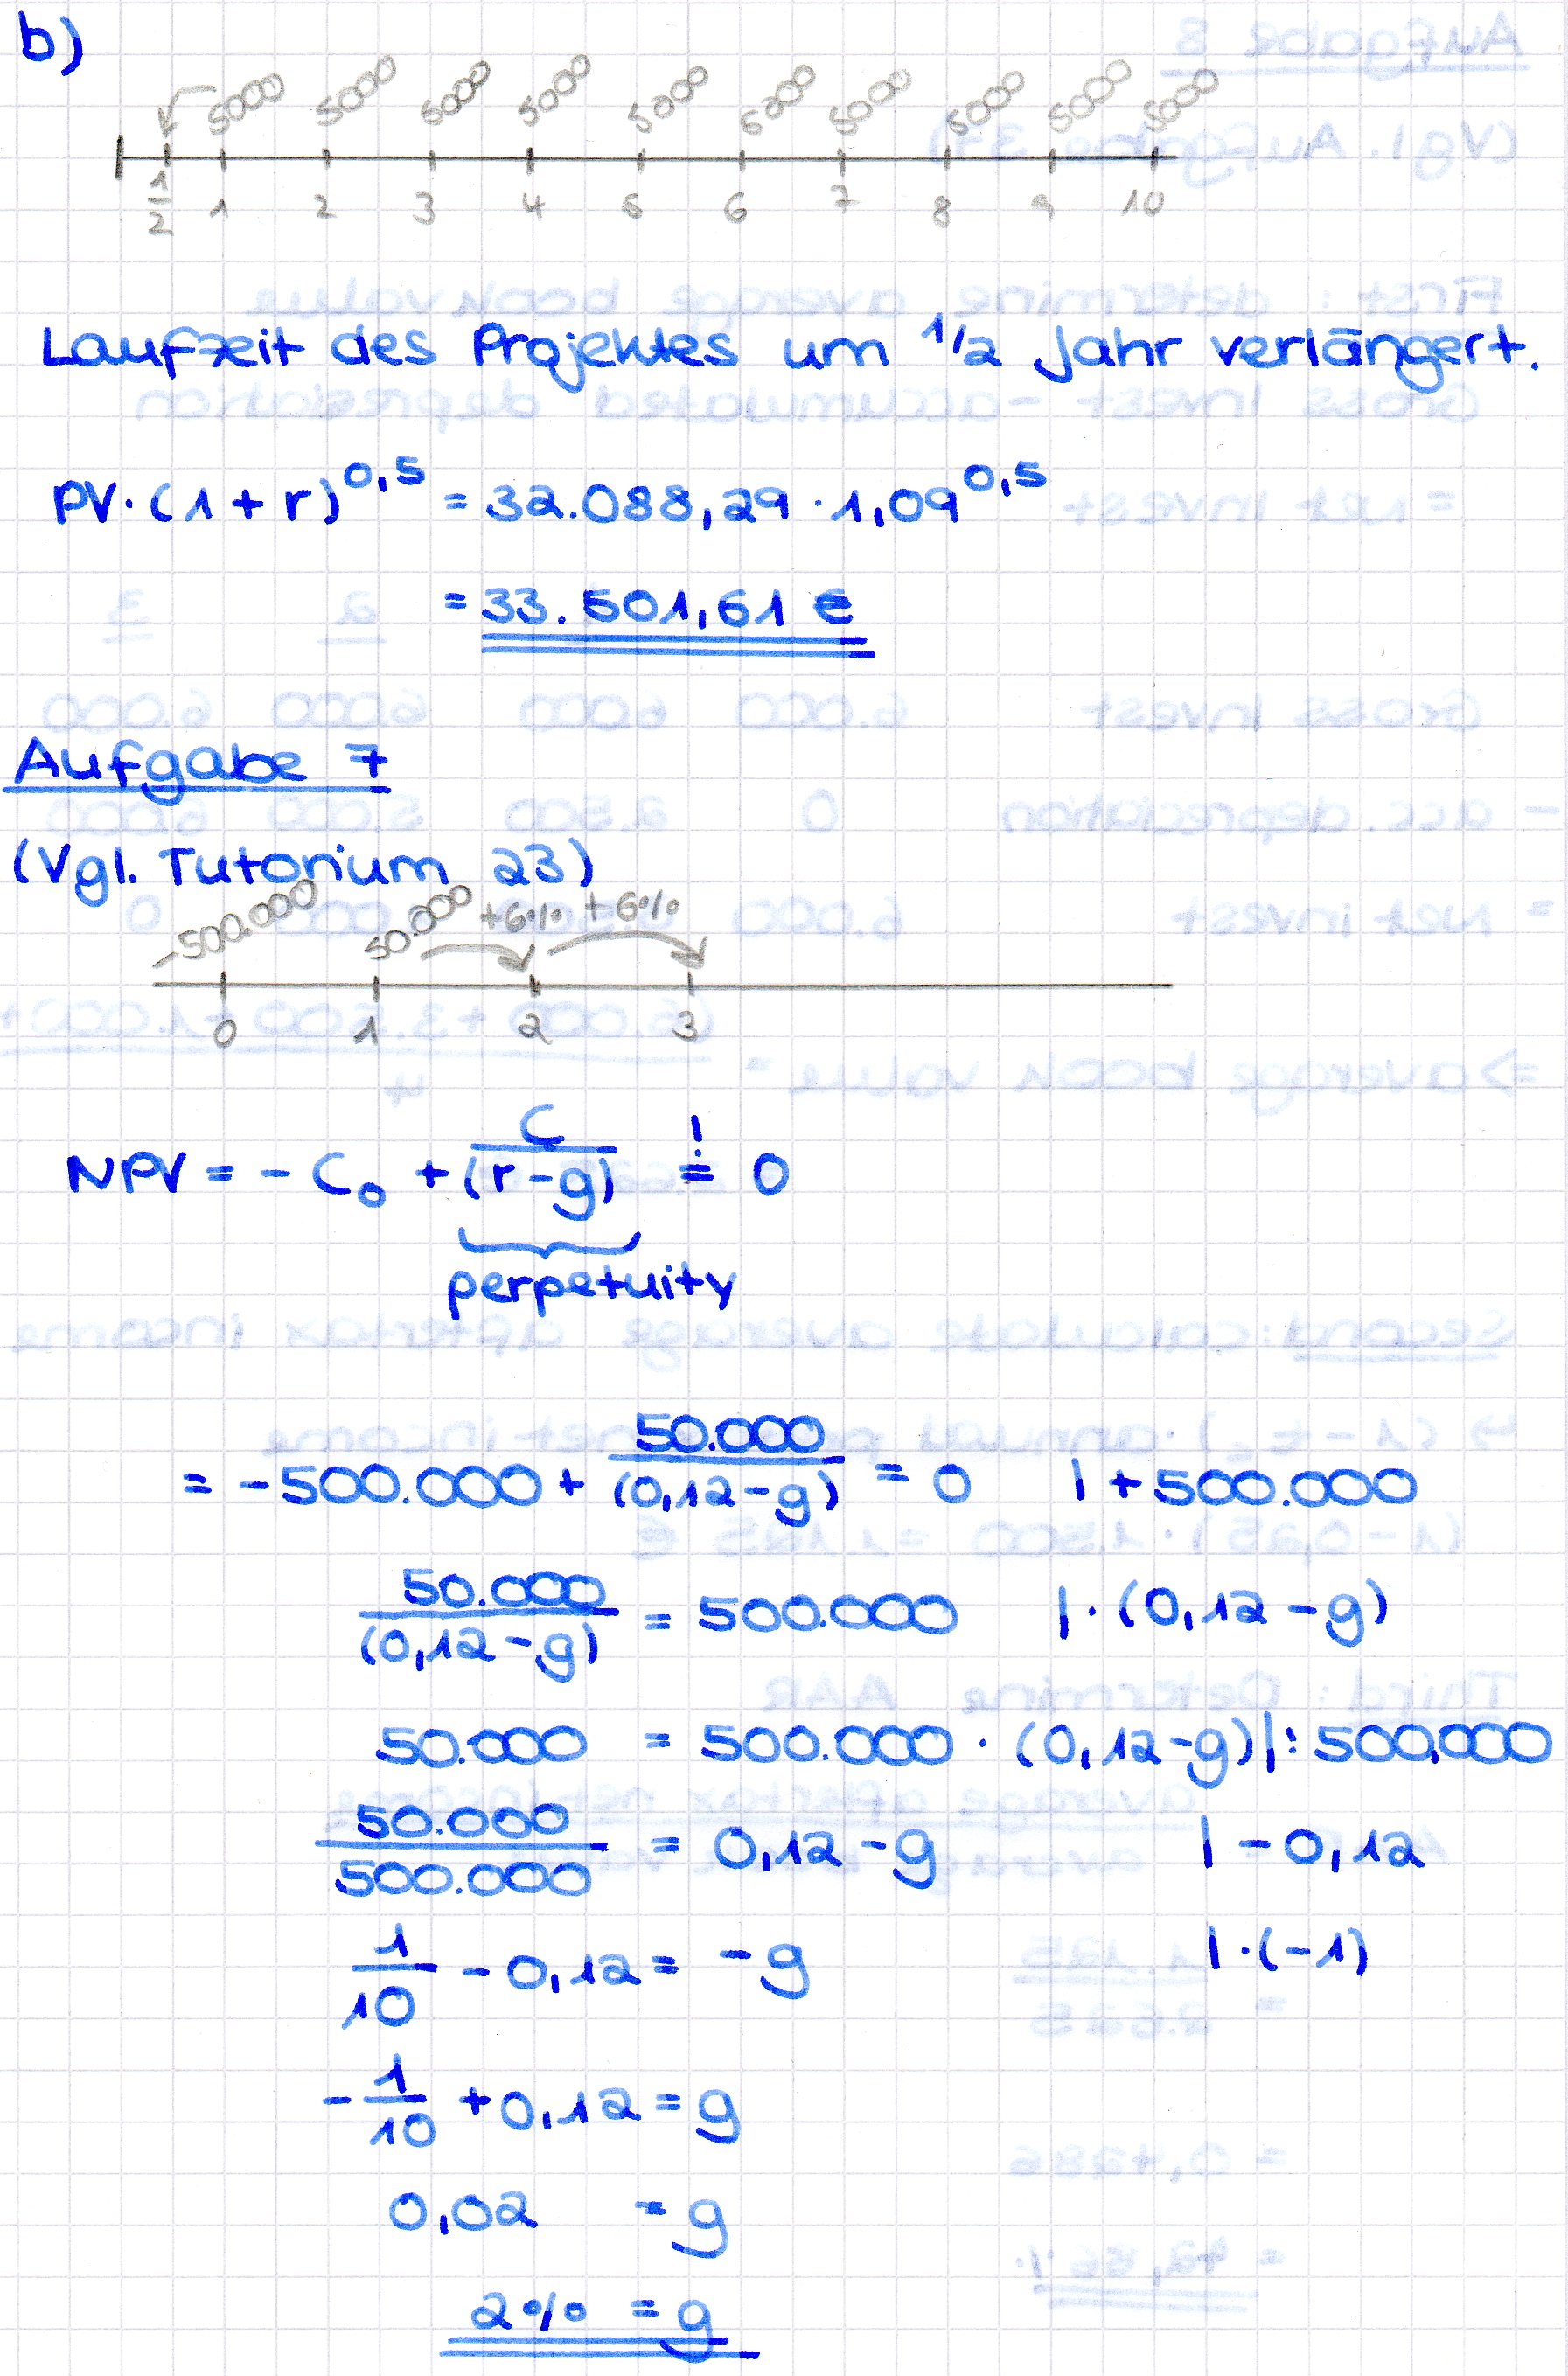 b)
5000 5000 5000 5000 5000 5000 5000 5000 5000 5000
1/2 1 2 3 4 5 6 7 8 9 10
Laufzeit des Projektes um 1/2 Jahr verlängert.
PV·(1+r)^0,5 = 32.088,29 · 1,09^0,5
= 33.501,61 €
Aufgabe 7
(Vgl. Tutorium 23)
-500.000 50.000 +6% +6%
0 1 2 3
NPV = - C₀ + C/(r-g) =! 0
perpetuity
= -500.000 + 50.000/(0,12-g) = 0 | +500.000
50.000/(0,12-g) = 500.000 | · (0,12-g)
50.000 = 500.000 · (0,12-g) | : 500.000
50.000/500.000 = 0,12-g | -0,12
1/10 - 0,12 = -g | ·(-1)
-1/10 + 0,12 = g
0,02 = g
2% = g